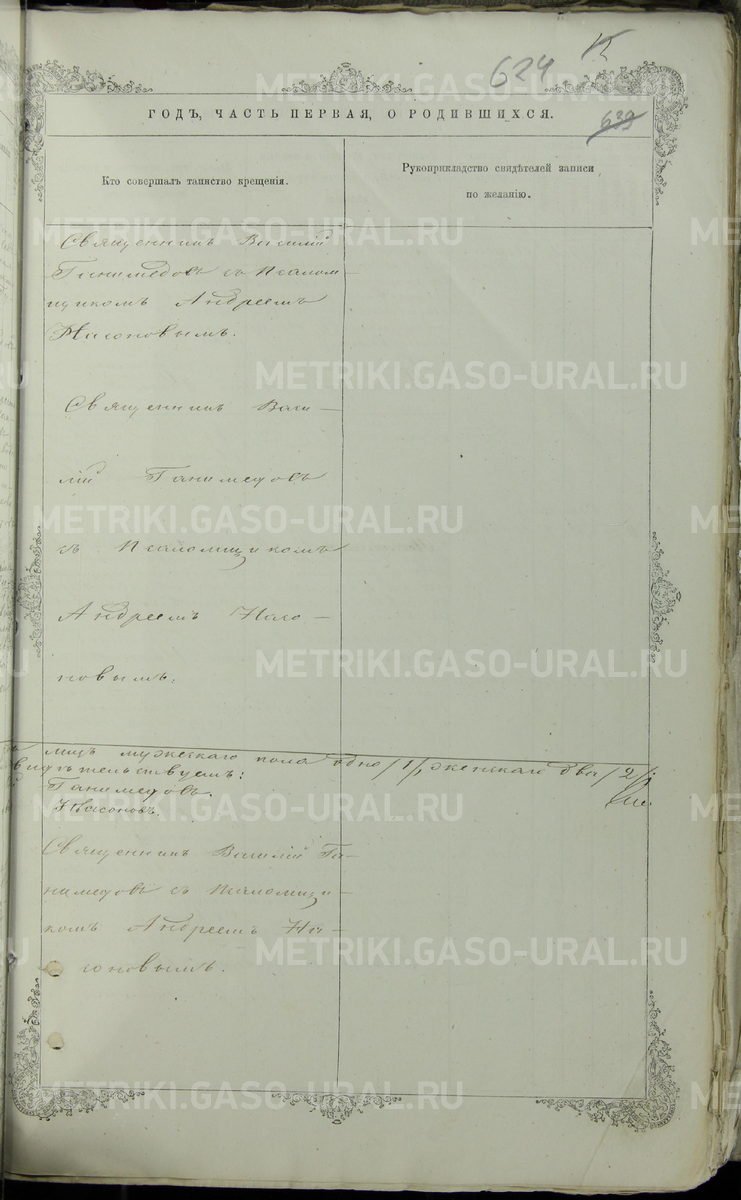 624
639
ГОДЪ, ЧАСТЬ ПЕРВАЯ, О РОДИВШИХСЯ.
Кто совершалъ таинство крещенія.
Рукоприкладство свидѣтелей записи
по желанію.
Священникъ Василій
Ганимедовъ съ Псалом-
щикомъ Андреемъ
Насоновымъ.
Священникъ Васи-
лій Ганимедовъ
съ Псаломщикомъ
Андреемъ Насо-
новымъ.
лицъ мужескаго пола одно /1/, женскаго два /2/
видѣтельствуемъ:
Ганимедовъ.
Насоновъ.
Священникъ Василій Га-
нимедовъ съ Псаломщи-
комъ Андреемъ На-
соновымъ.
METRIKI.GASO-URAL.RU